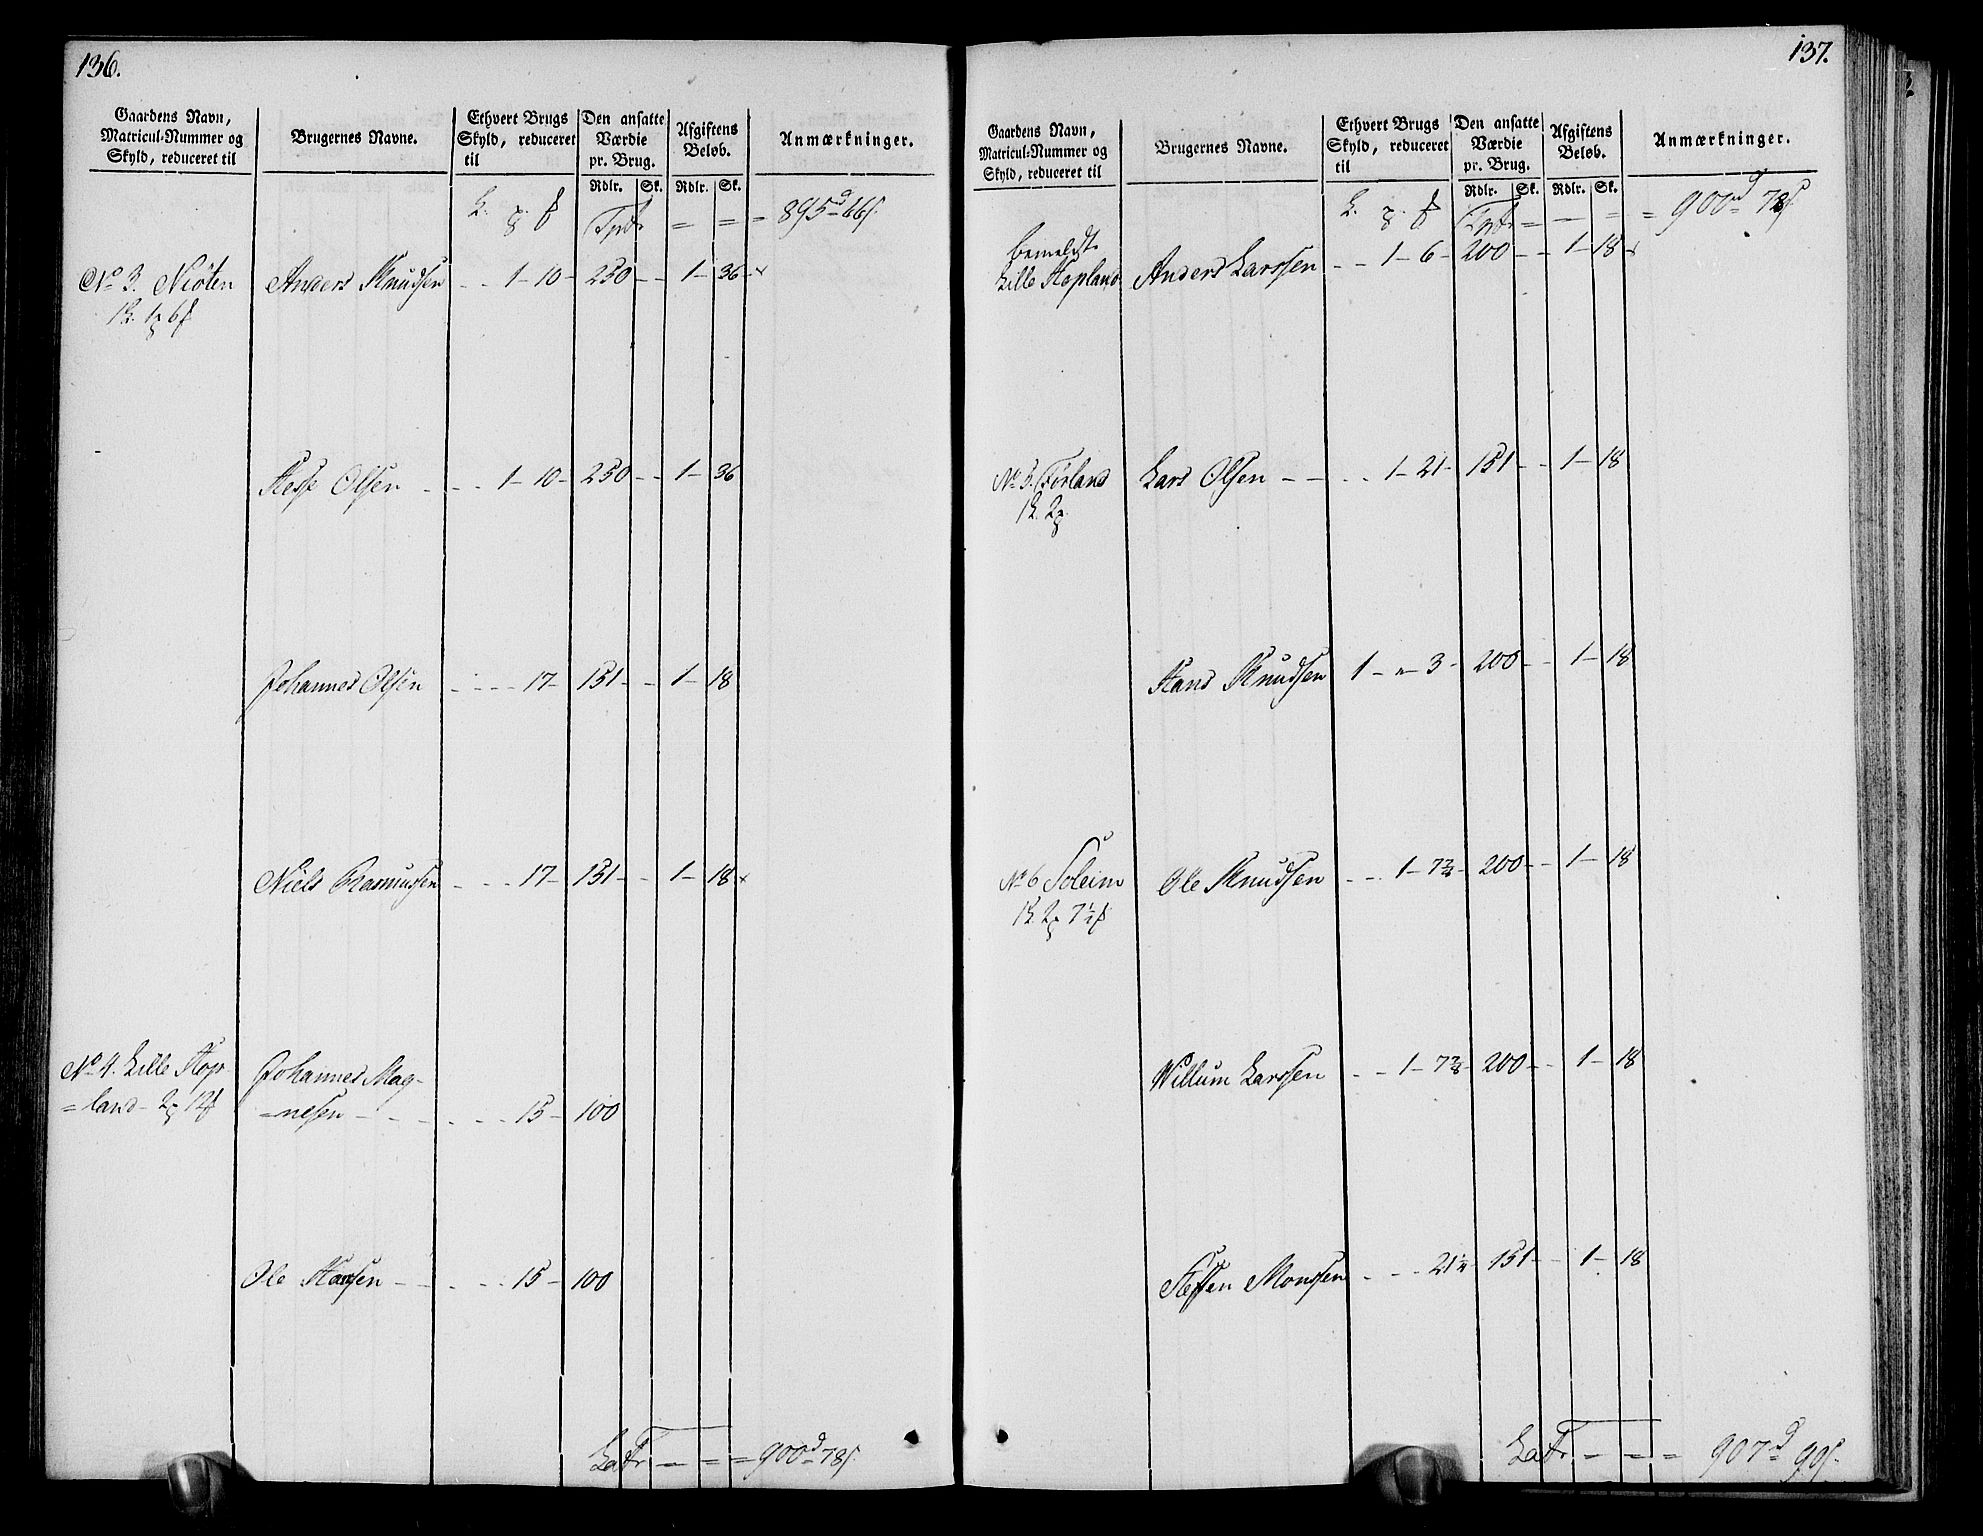 136.
Gaardens Navn,
Matricul-Nummer og
Skyld, reduceret til
Brugernes Navne.
Ethvert Brugs
Skyld, reduceret
til
Den ansatte
Værdie
pr. Brug.
Afgiftens
Beløb.
Anmærkninger.
Rdlr. Sk. Rdlr. Sk.
= = = 895 d 66 s.
No 3. Niöten Anders Knudsen - - 1 - 10 - 250 - - 1 - 36 - x
Hesse Olsen - - - 1 - 10 - 250 - - 1 - 36
Johannes Olsen - - - - 17 - 151 - - 1 - 18
Niels Rasmussen - - - - 17 - 151 - - 1 - 18 x
No 4. Lille Hop- Johannes Mag-
=land - =nesen - - - - - - 15 - 100
Ole Hansen - - - - - 15 - 100
Latr - = = 900 d 78 s.
137.
Gaardens Navn,
Matricul-Nummer og
Skyld, reduceret til
Brugernes Navne.
Ethvert Brugs
Skyld, reduceret
til
Den ansatte
Værdie
pr. Brug.
Afgiftens
Beløb.
Anmærkninger.
Rdlr. Sk. Rdlr. Sk.
= - = = 900 d 78 s.
bemeldte
Lille Hopland Anders Larssen - - 1 - 6 - 200 - - 1 - 18 x
No 5. Førland Lars Olsen - - - - 1 - 21 - 151 - - 1 - 18
Hans Knudsen 1 - " - 3 - 200 - - 1 - 18
No 6 Soleim Ole Knudsen - - - 1 - 7 200 - - 1 - 18
Willum Larssen - - 1 - 7 200 - - 1 - 18
Hessen Monssen - - - 21 151 - - 1 - 18
Latr - = = 907 d 90 s.